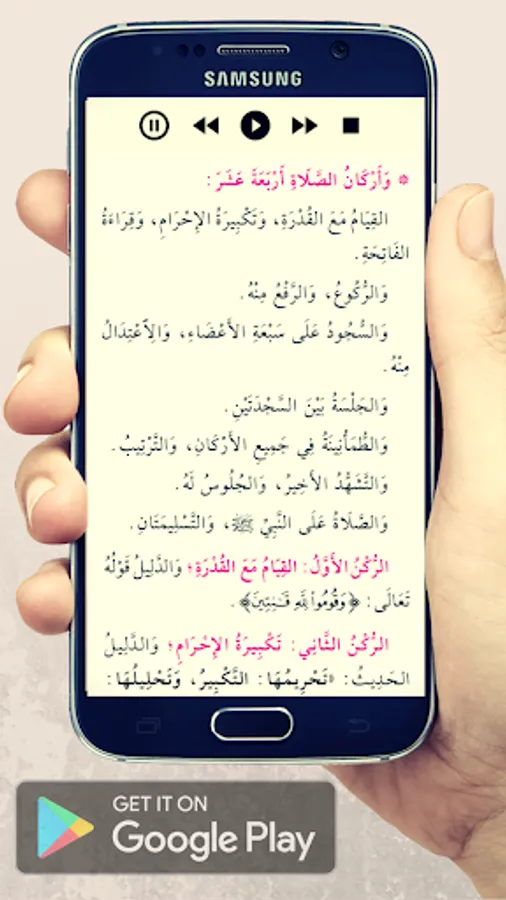 SAMSUNG
* وَأَرْكَانُ الصَّلَاةِ أَرْبَعَةَ عَشَرَ:
القِيَامُ مَعَ القُدْرَةِ، وَتَكْبِيرَةُ الإِحْرَامِ، وَقِرَاءَةُ
الفَاتِحَةِ.
وَالرُّكُوعُ، وَالرَّفْعُ مِنْهُ.
وَالسُّجُودُ عَلَى سَبْعَةِ الأَعْضَاءِ، وَالِاعْتِدَالُ
مِنْهُ.
وَالجَلْسَةُ بَيْنَ السَّجْدَتَيْنِ.
وَالطُّمَأْنِينَةُ فِي جَمِيعِ الأَرْكَانِ، وَالتَّرْتِيبُ.
وَالتَّشَهُّدُ الأَخِيرُ، وَالجُلُوسُ لَهُ.
وَالصَّلَاةُ عَلَى النَّبِيِّ ﷺ، وَالتَّسْلِيمَتَانِ.
الرُّكْنُ الأَوَّلُ: القِيَامُ مَعَ القُدْرَةِ؛ وَالدَّلِيلُ قَوْلُهُ
تَعَالَى: ﴿وَقُومُوا۟ لِلَّهِ قَـٰنِتِينَ﴾.
الرُّكْنُ الثَّانِي: تَكْبِيرَةُ الإِحْرَامِ؛ وَالدَّلِيلُ
الحَدِيثُ: «تَحْرِيمُهَا: التَّكْبِيرُ، وَتَحْلِيلُهَا:
GET IT ON
Google Play